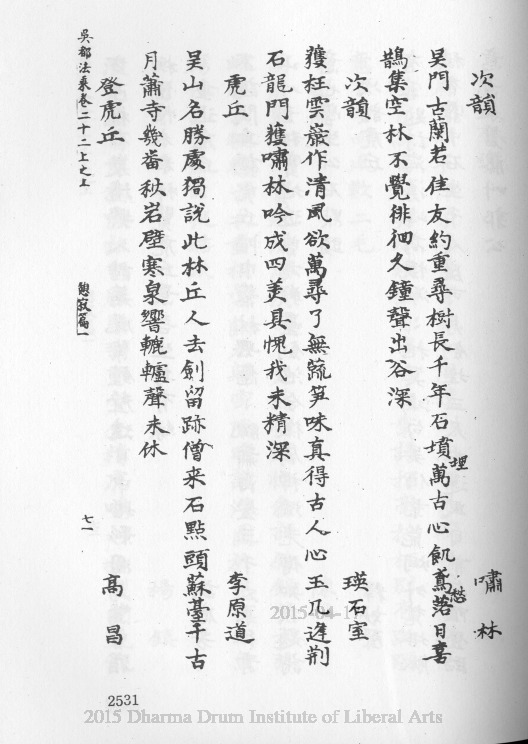 次韻　嘯林
吴門古蘭若佳友約重尋樹長千年石墳萬古心飢鳶落日喜
埋
堦
鵲集空林不覺徘徊久鐘聲出谷深
次韻　瑛石室
獲枉雲嚴作清風欲萬尋了無蔬笋味真得古人心玉几逢荆
石龍門獲嘯林吟成四美具愧我未精深
虎丘　李原道
吴山名勝處獨說此林丘人去劍留跡僧来石點頭蘇臺千古
月蕭寺幾畨秋岩壁寒泉響轆轤聲未休
登虎丘　高昌
吳都法乘卷二十二上之上　憩寂篇一　七一
2531
2015-04-1
2015 Dharma Drum Institute of Liberal Arts